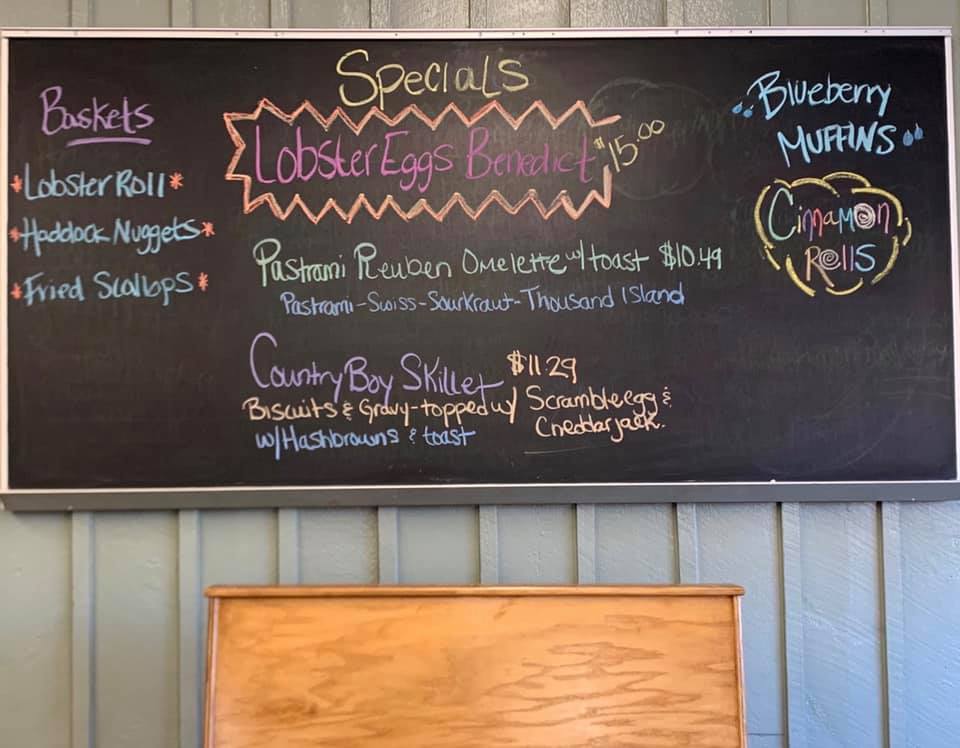 Baskets
*Lobster Roll*
*Haddock Nuggets*
*Fried Scallops*
Specials
Lobster Eggs Benedict $15.00
Pastrami Reuben Omelette w/ toast $10.49
Pastrami-Swiss-Sourkraut-Thousand Island
Country Boy Skillet $11.29
Biscuits & Gravy-topped w/ Scrambleegg &
Cheddar jack.
w/Hashbrowns & toast
Blueberry
Muffins
Cinnamon
Rolls